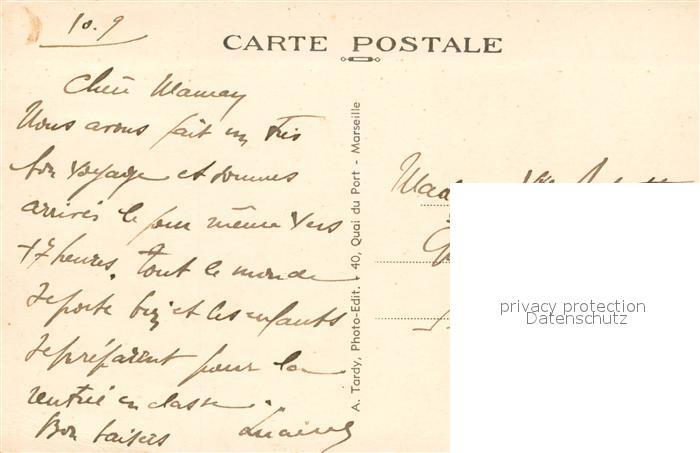 10.9
CARTE POSTALE
Chère Maman
Nous avons fait un très
bon voyage et sommes
arrivés le jour même vers
17 heures. tout le monde
se porte bien et les enfants
se préparent pour la
rentrée en classe.
Bon baisers
A. Tardy, Photo-Edit. - 40, Quai du Port - Marseille
privacy protection
Datenschutz